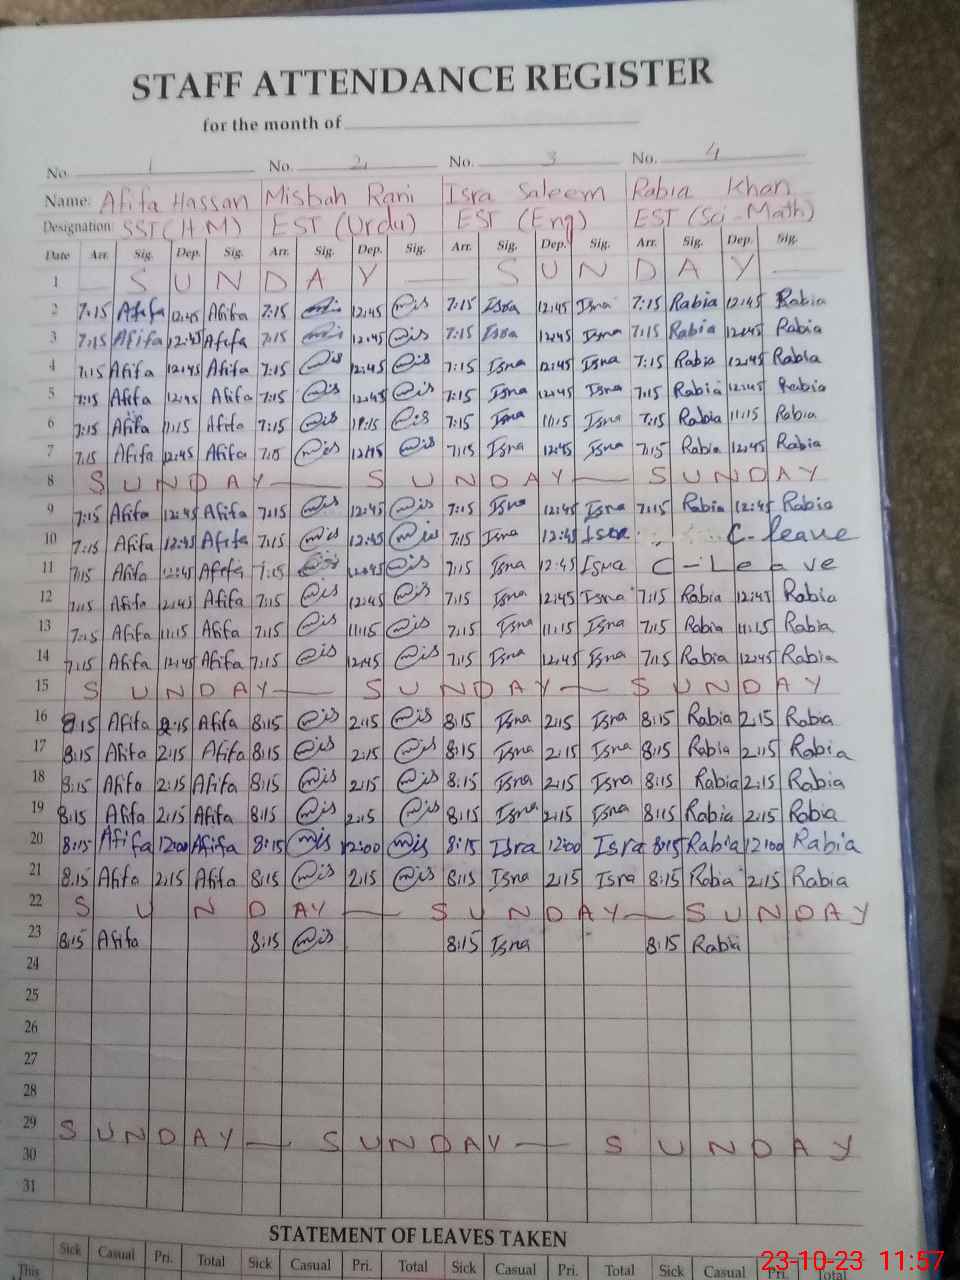 STAFF ATTENDANCE REGISTER
for the month of
No. 1 No. 2 No. 3 No. 4
Name: Afifa Hassan Misbah Rani Isra Saleem Rabia Khan
Designation: SST (H.M) EST (Urdu) EST (Eng) EST (Sci-Math)
Date Arr. Sig. Dep. Sig. Arr. Sig. Dep. Sig. Arr. Sig. Dep. Sig. Arr. Sig. Dep. Sig.
1 SUNDAY — SUNDAY
2 7:15 Afifa 12:45 Afifa 7:15 12:45 7:15 Isra 12:45 Isra 7:15 Rabia 12:45 Rabia
3 7:15 Afifa 12:45 Afifa 7:15 12:45 7:15 Isra 12:45 Isra 7:15 Rabia 12:45 Rabia
4 7:15 Afifa 12:45 Afifa 7:15 12:45 7:15 Isra 12:45 Isra 7:15 Rabia 12:45 Rabia
5 7:15 Afifa 12:45 Afifa 7:15 12:45 7:15 Isra 12:45 Isra 7:15 Rabia 12:45 Rabia
6 7:15 Afifa 11:15 Afifa 7:15 11:15 7:15 Isra 11:15 Isra 7:15 Rabia 11:15 Rabia
7 7:15 Afifa 12:45 Afifa 7:15 12:45 7:15 Isra 12:45 Isra 7:15 Rabia 12:45 Rabia
8 SUNDAY — SUNDAY — SUNDAY
9 7:15 Afifa 12:45 Afifa 7:15 12:45 7:15 Isra 12:45 Isra 7:15 Rabia 12:45 Rabia
10 7:15 Afifa 12:45 Afifa 7:15 12:45 7:15 Isra 12:45 Isra C-leave
11 7:15 Afifa 12:45 Afifa 7:15 12:45 7:15 Isra 12:45 Isra C-Leave
12 7:15 Afifa 12:45 Afifa 7:15 12:45 7:15 Isra 12:45 Isra 7:15 Rabia 12:45 Rabia
13 7:15 Afifa 11:15 Afifa 7:15 11:15 7:15 Isra 11:15 Isra 7:15 Rabia 11:15 Rabia
14 7:15 Afifa 12:45 Afifa 7:15 12:45 7:15 Isra 12:45 Isra 7:15 Rabia 12:45 Rabia
15 SUNDAY — SUNDAY — SUNDAY
16 8:15 Afifa 2:15 Afifa 8:15 2:15 8:15 Isra 2:15 Isra 8:15 Rabia 2:15 Rabia
17 8:15 Afifa 2:15 Afifa 8:15 2:15 8:15 Isra 2:15 Isra 8:15 Rabia 2:15 Rabia
18 8:15 Afifa 2:15 Afifa 8:15 2:15 8:15 Isra 2:15 Isra 8:15 Rabia 2:15 Rabia
19 8:15 Afifa 2:15 Afifa 8:15 2:15 8:15 Isra 2:15 Isra 8:15 Rabia 2:15 Rabia
20 8:15 Afifa 12:00 Afifa 8:15 12:00 8:15 Isra 12:00 Isra 8:15 Rabia 12:00 Rabia
21 8:15 Afifa 2:15 Afifa 8:15 2:15 8:15 Isra 2:15 Isra 8:15 Rabia 2:15 Rabia
22 SUNDAY — SUNDAY — SUNDAY
23 8:15 Afifa 8:15 8:15 Isra 8:15 Rabia
24
25
26
27
28
29 SUNDAY — SUNDAY — SUNDAY
30
31
STATEMENT OF LEAVES TAKEN
Sick Casual Pri. Total Sick Casual Pri. Total Sick Casual Pri. Total Sick Casual Pri. Total
This
23-10-23 11:57